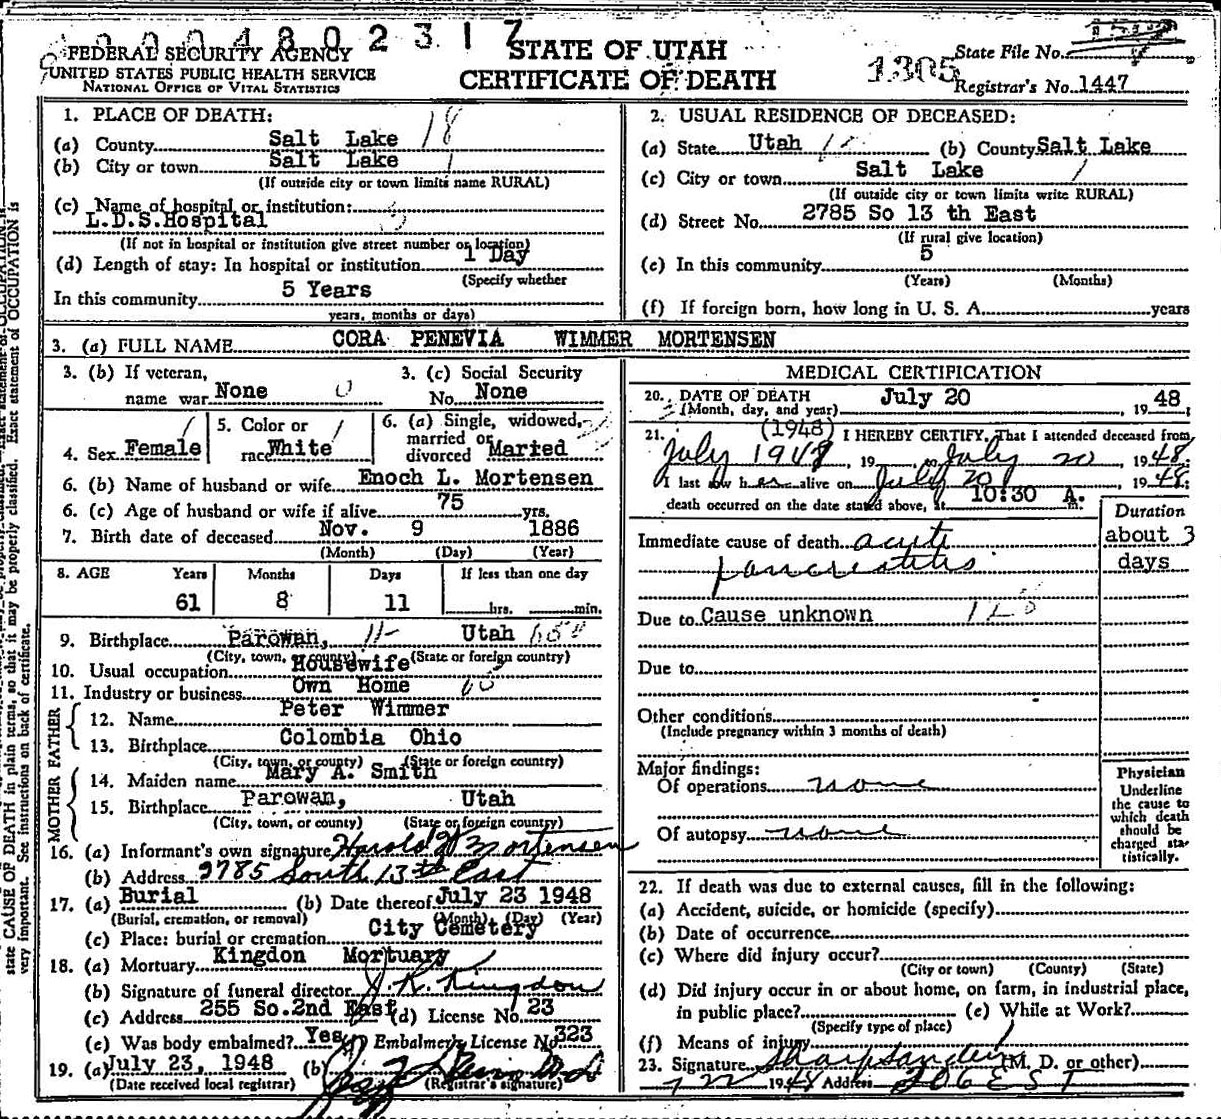 0004802317
FEDERAL SECURITY AGENCY
UNITED STATES PUBLIC HEALTH SERVICE
NATIONAL OFFICE OF VITAL STATISTICS
STATE OF UTAH
CERTIFICATE OF DEATH
1305
State File No.
Registrar's No. 1447
1. PLACE OF DEATH:
(a) County Salt Lake 18
(b) City or town Salt Lake 1
(If outside city or town limits name RURAL)
(c) Name of hospital or institution:
L.D.S.Hospital
(If not in hospital or institution give street number or location)
(d) Length of stay: In hospital or institution 1 Day
(Specify whether
In this community 5 Years
years, months or days)
2. USUAL RESIDENCE OF DECEASED:
(a) State Utah (b) County Salt Lake
(c) City or town Salt Lake 1
(If outside city or town limits write RURAL)
(d) Street No. 2785 So 13 th East
(If rural give location)
(e) In this community 5
(Years) (Months)
(f) If foreign born, how long in U. S. A. years
3. (a) FULL NAME CORA PENEVIA WIMMER MORTENSEN
3. (b) If veteran,
name war None 0
3. (c) Social Security
No. None
4. Sex Female
5. Color or
race White
6. (a) Single, widowed,
married or
divorced Maried
6. (b) Name of husband or wife Enoch L. Mortensen
6. (c) Age of husband or wife if alive 75 yrs.
7. Birth date of deceased Nov. 9 1886
(Month) (Day) (Year)
8. AGE Years Months Days If less than one day
61 8 11 hrs. min.
9. Birthplace Parowan, Utah
(City, town, or county) (State or foreign country)
10. Usual occupation Housewife
11. Industry or business Own Home
FATHER
12. Name Peter Wimmer
13. Birthplace Colombia Ohio
(City, town, or county) (State or foreign country)
MOTHER
14. Maiden name Mary A. Smith
15. Birthplace Parowan, Utah
(City, town, or county) (State or foreign country)
16. (a) Informant's own signature Harold W Mortensen
(b) Address 2785 South 13th East
17. (a) Burial (b) Date thereof July 23 1948
(Burial, cremation, or removal) (Month) (Day) (Year)
(c) Place: burial or cremation City Cemetery
18. (a) Mortuary Kingdon Mortuary
(b) Signature of funeral director J. R. Kingdon
(c) Address 255 So.2nd East (d) License No. 23
(e) Was body embalmed? Yes (f) Embalmer's License No. 323
19. (a) July 23, 1948 (b)
(Date received local registrar) (Registrar's signature)
MEDICAL CERTIFICATION
20. DATE OF DEATH July 20 48
(Month, day, and year) , 19 ;
21. (1948) I HEREBY CERTIFY, That I attended deceased from
July 1948, 19 to July 20 1948
I last saw her alive on July 20 , 1948;
death occurred on the date stated above, at 10:30 A. m.
Duration
Immediate cause of death acute about 3
pancreatitis days
Due to Cause unknown
Due to
Other conditions
(Include pregnancy within 3 months of death)
Major findings:
Of operations none
Of autopsy none
Physician
Underline
the cause to
which death
should be
charged sta-
tistically.
22. If death was due to external causes, fill in the following:
(a) Accident, suicide, or homicide (specify)
(b) Date of occurrence
(c) Where did injury occur?
(City or town) (County) (State)
(d) Did injury occur in or about home, on farm, in industrial place,
in public place? (e) While at Work?
(Specify type of place)
(f) Means of injury
23. Signature (M. D. or other)
7 22 1948 Address 206 E S T
state CAUSE OF DEATH in plain terms, so that it may be properly classified. Exact statement of OCCUPATION is
very important. See instructions on back of certificate.